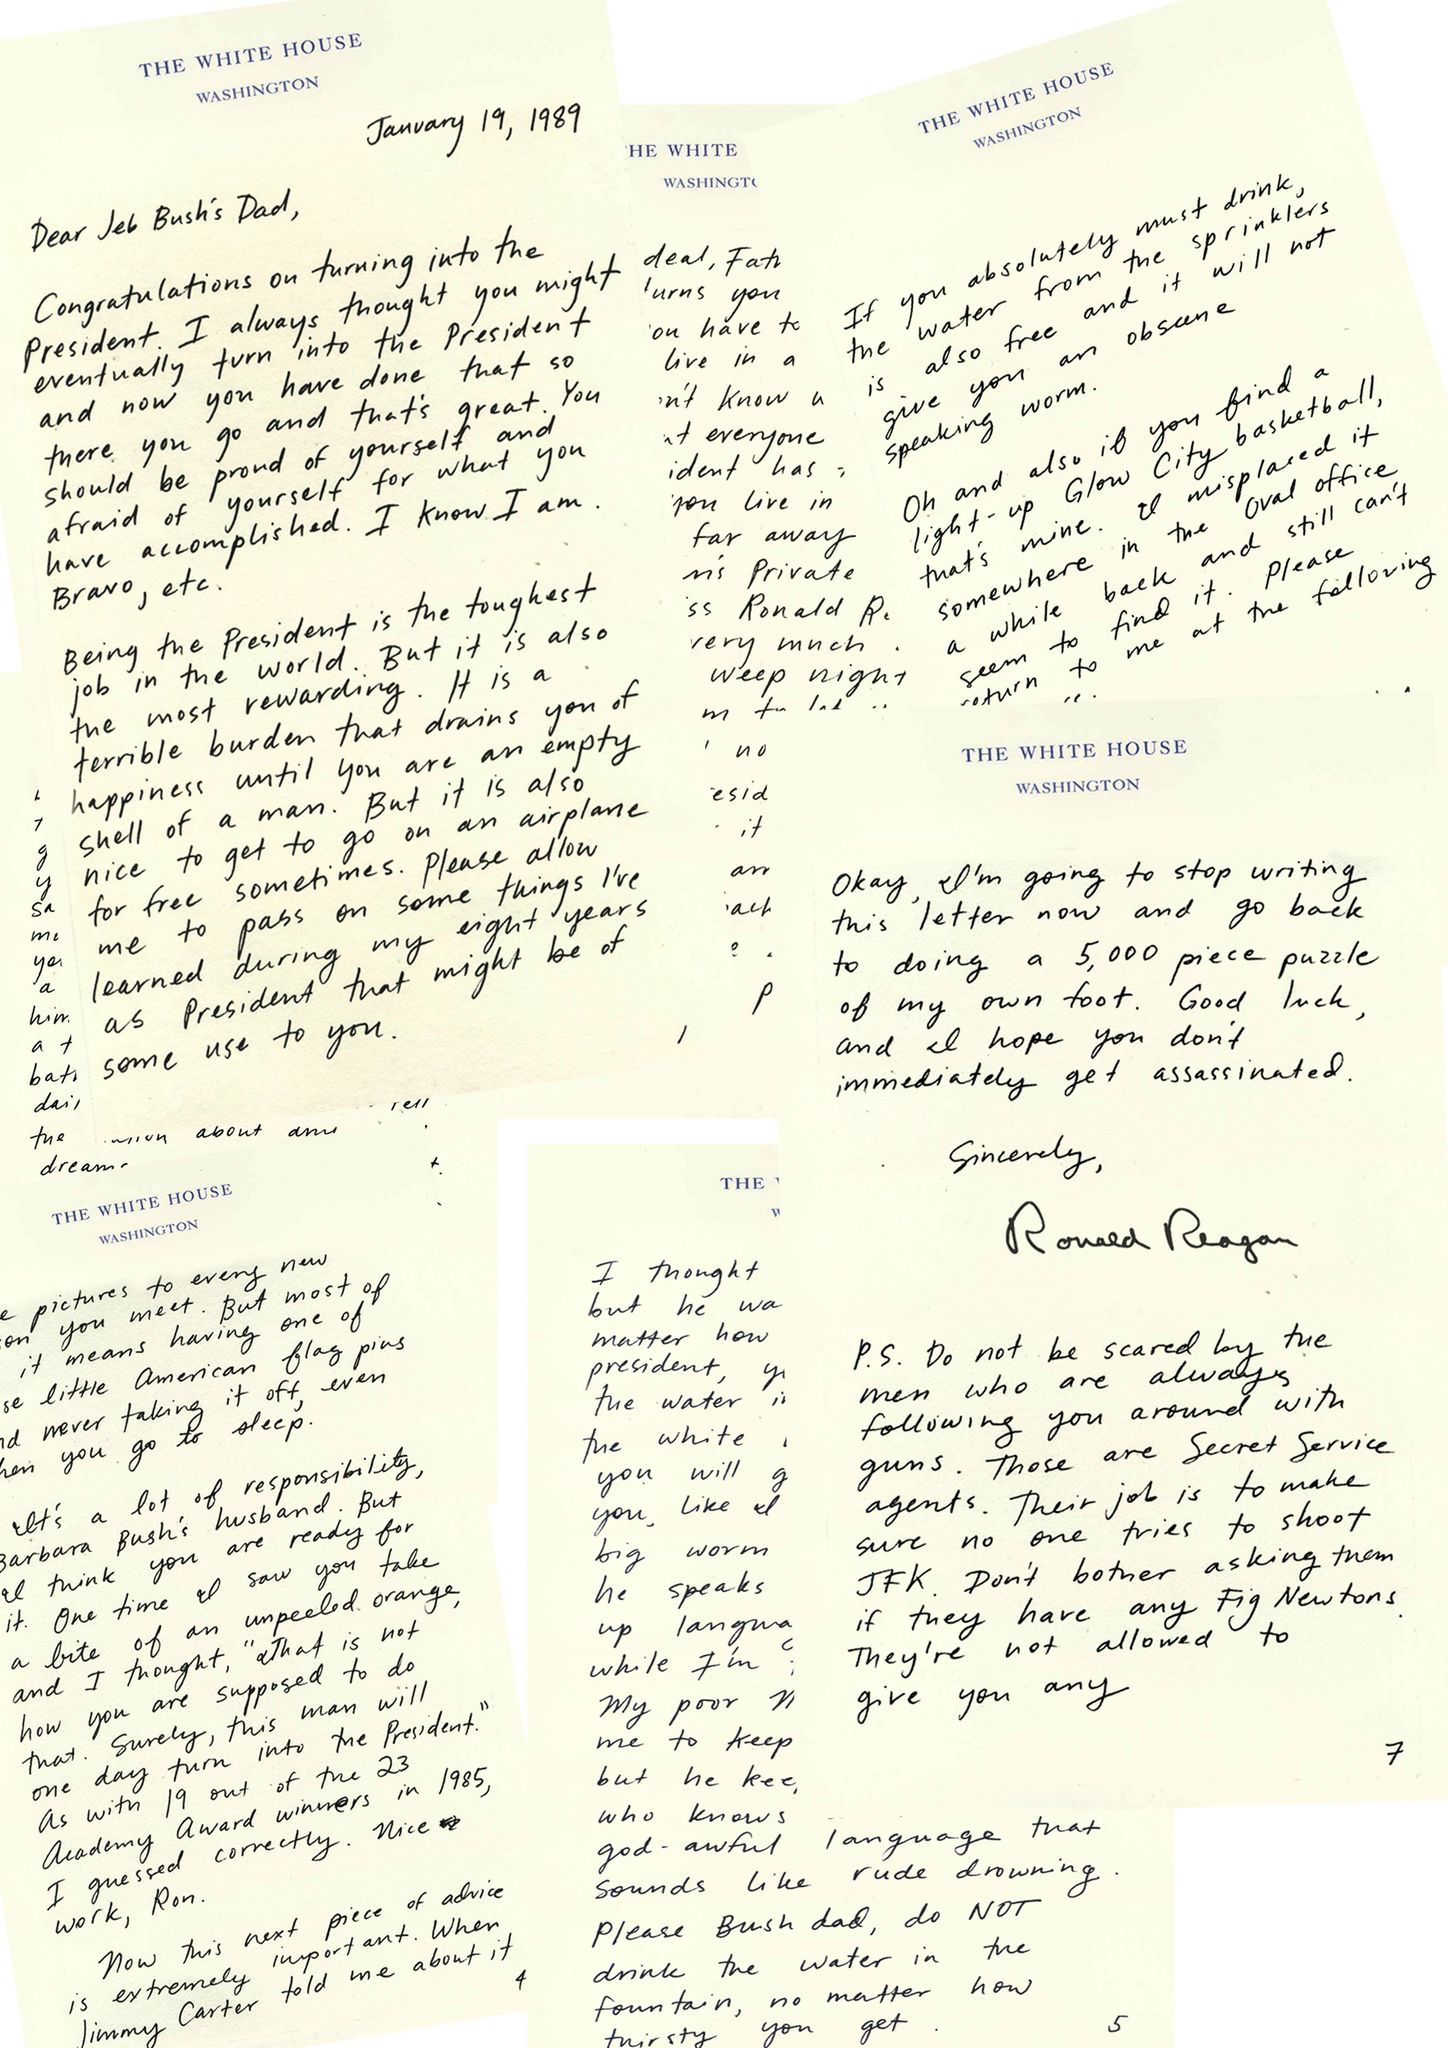 THE WHITE HOUSE
WASHINGTON
January 19, 1989
Dear Jeb Bush's Dad,
Congratulations on turning into the
President. I always thought you might
eventually turn into the President
and now you have done that so
there you go and that's great. You
should be proud of yourself and
afraid of yourself for what you
have accomplished. I know I am.
Bravo, etc.
Being the President is the toughest
job in the world. But it is also
the most rewarding. It is a
terrible burden that drains you of
happiness until you are an empty
shell of a man. But it is also
nice to get to go on an airplane
for free sometimes. Please allow
me to pass on some things I've
learned during my eight years
as President that might be of
some use to you.
1
g
y
sa
a
him
a t
the
about
dream
HE WHITE
WASHINGT
deal, Fat
urns you
ou have to
live in a
n't know u
t everyone
ident has
you live in
far away
n's Private
ss Ronald R.
very much.
weep night
no
esid
it
an
ach
?
p
THE WHITE HOUSE
WASHINGTON
If you absolutely must drink,
the water from the sprinklers
is also free and it will not
give you an obscene
speaking worm.
Oh and also if you find a
light-up Glow City basketball,
that's mine. I misplaced it
somewhere in the Oval office
a while back and still can't
seem to find it. Please
return to me at the following
THE WHITE HOUSE
WASHINGTON
e pictures to every new
on you meet. But most of
it means having one of
se little American flag pins
nd never taking it off, even
hen you go to sleep.
It's a lot of responsibility,
Barbara Bush's husband. But
I think you are ready for
it. One time I saw you take
a bite of an unpeeled orange,
and I thought, "That is not
how you are supposed to do
that. Surely, this man will
one day turn into the President."
As with 19 out of the 23
Academy Award winners in 1985,
I guessed correctly. Nice
work, Ron.
Now this next piece of advice
is extremely important. When
Jimmy Carter told me about it
4
THE
W
I thought
but he wa
matter how
president, y
the water i
the white
you will g
you, like I
big worm
he speaks
up langua
while I'm
My poor N
me to keep
but he kee
who knows
god-awful language that
sounds like rude drowning.
Please Bush dad, do NOT
drink the water in the
fountain, no matter how
thirsty you get.
5
THE WHITE HOUSE
WASHINGTON
Okay, I'm going to stop writing
this letter now and go back
to doing a 5,000 piece puzzle
of my own foot. Good luck,
and I hope you don't
immediately get assassinated.
Sincerely,
Ronald Reagan
P.S. Do not be scared by the
men who are always
following you around with
guns. Those are Secret Service
agents. Their job is to make
sure no one tries to shoot
JFK. Don't bother asking them
if they have any Fig Newtons.
They're not allowed to
give you any
7